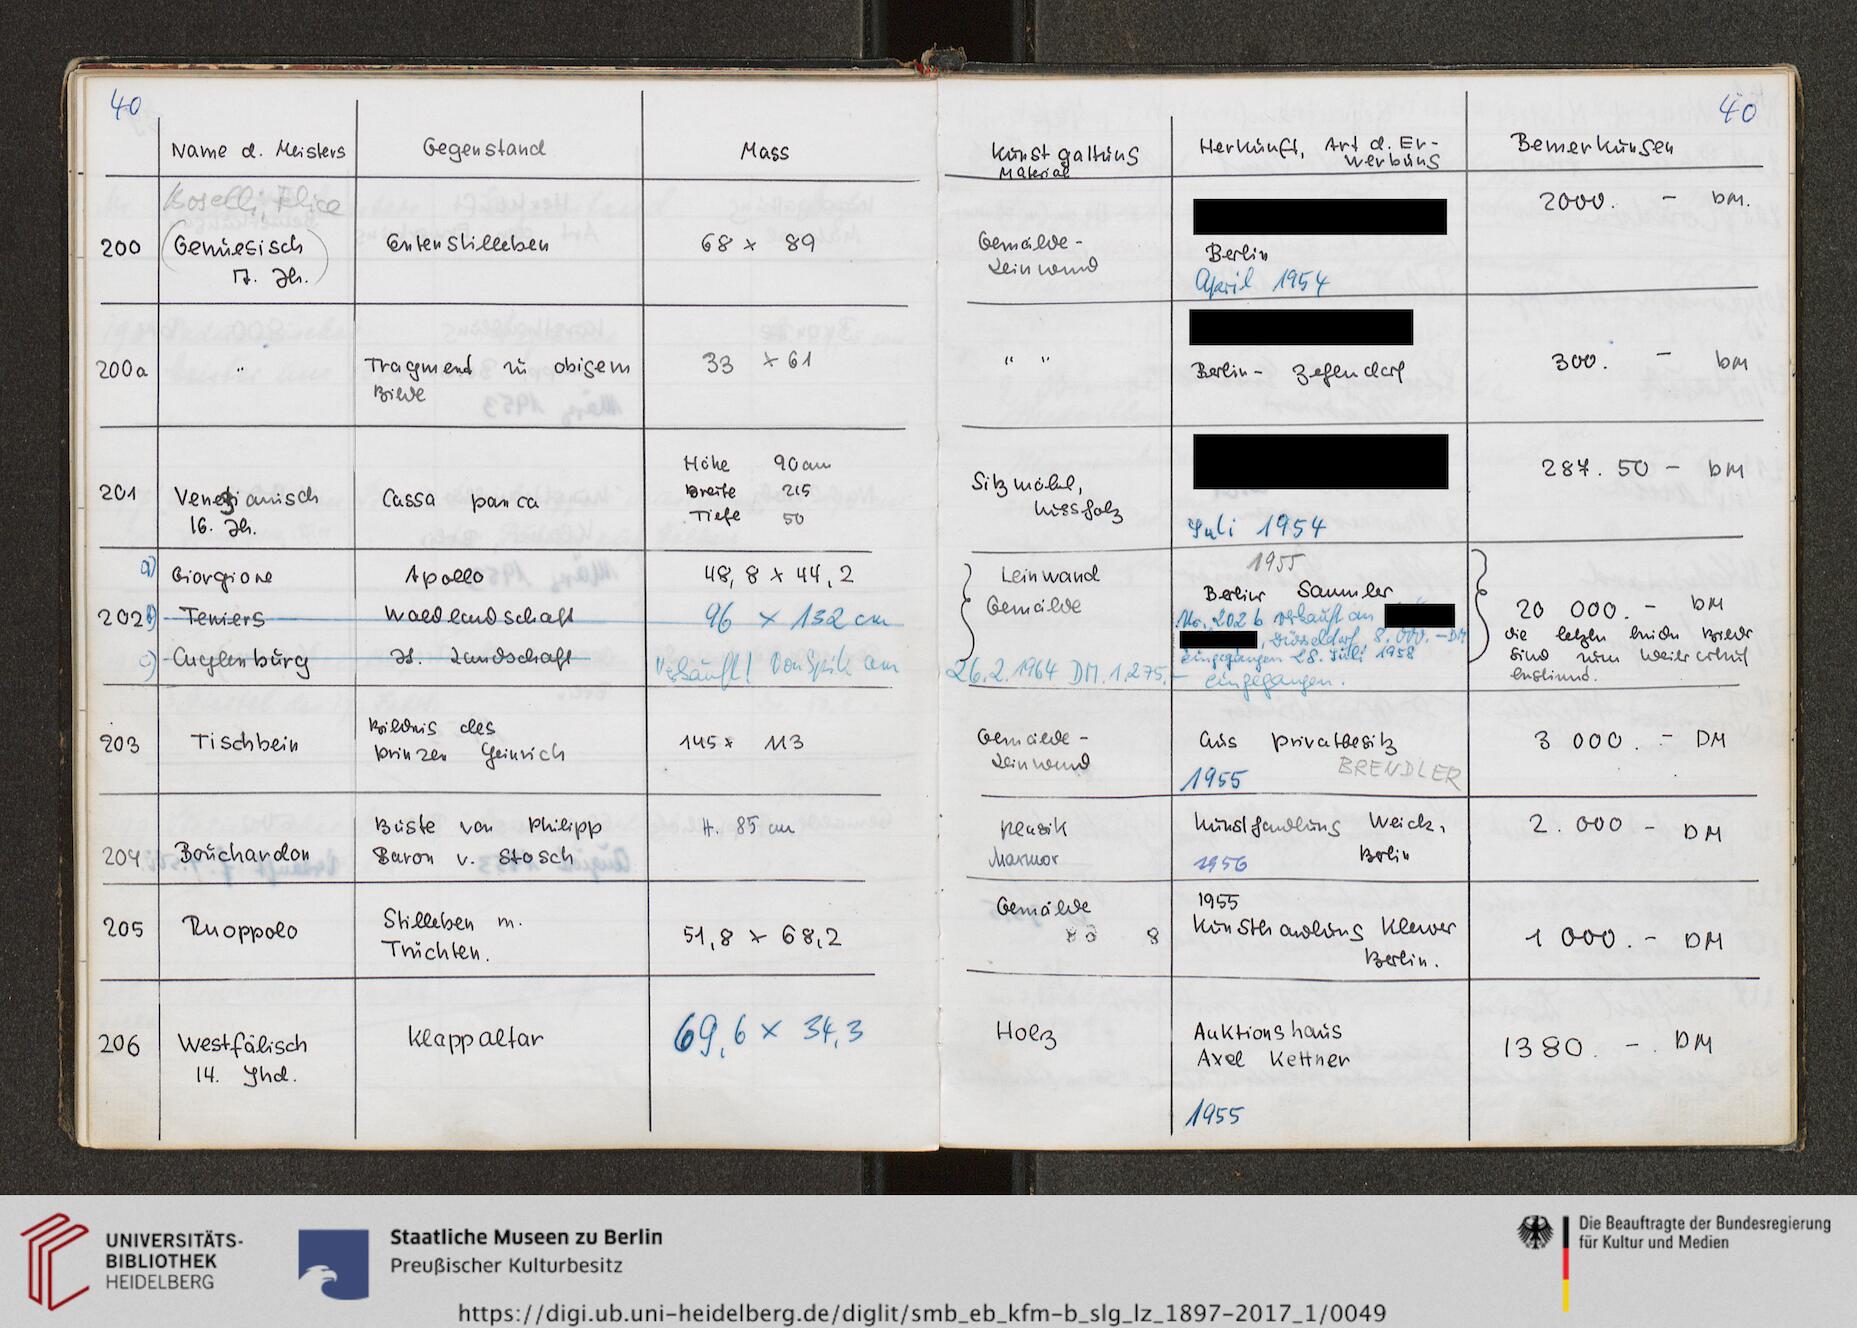 40
40
Name d. Meisters
Gegenstand
Mass
Kunstgattung
Material
Herkunft, Art d. Er-
werbung
Bemerkungen
Boselli, Felice
200
(Genuesisch
17. Jh.)
Entenstilleben
68 x 89
Gemälde-
Leinwand
Berlin
April 1954
2000. - DM.
200a
"
Fragment zu obigem
Bilde
33 x 61
" "
Berlin- Zehlendorf
300. - DM
201
Venezianisch
16. Jh.
Cassa panca
Höhe 90 cm
Breite 215
Tiefe 50
Sitzmöbel,
Nussholz
Juli 1954
287. 50 - DM
202
a)
Giorgione
Apollo
48,8 x 44,2
Leinwand
Gemälde
1955
Berliner Sammler
b)
Teniers
Waldlandschaft
96 x 132 cm
Nr. 202 b verkauft an
, Düsseldorf, 8.000.-DM
eingegangen 28. Juli 1958
c)
Cuylenburg
It. Landschaft
Verkauft! Von Spik am
26.2.1964 DM. 1.275.-
eingegangen.
20 000. - DM
die letzten beiden Bilder
sind zum Weiterverkauf
bestimmt.
203
Tischbein
Bildnis des
Prinzen Heinrich
145 x 113
Gemälde-
Leinwand
Aus Privatbesitz
BRENDLER
1955
3 000. - DM
204
Bouchardon
Büste von Philipp
Baron v. Stosch
H. 85 cm
Plastik
Marmor
Kunsthandlung Weick,
Berlin
1956
2. 000 - DM
205
Ruoppolo
Stilleben m.
Früchten.
51,8 x 68,2
Gemälde
1955
Kunsthandlung Klewer
Berlin.
1 000. - DM
206
Westfälisch
14. Jhd.
Klappaltar
69,6 x 34,3
Holz
Auktionshaus
Axel Kettner
1955
1380. -. DM
UNIVERSITÄTS-
BIBLIOTHEK
HEIDELBERG
Staatliche Museen zu Berlin
Preußischer Kulturbesitz
Die Beauftragte der Bundesregierung
für Kultur und Medien
https://digi.ub.uni-heidelberg.de/diglit/smb_eb_kfm-b_slg_lz_1897-2017_1/0049